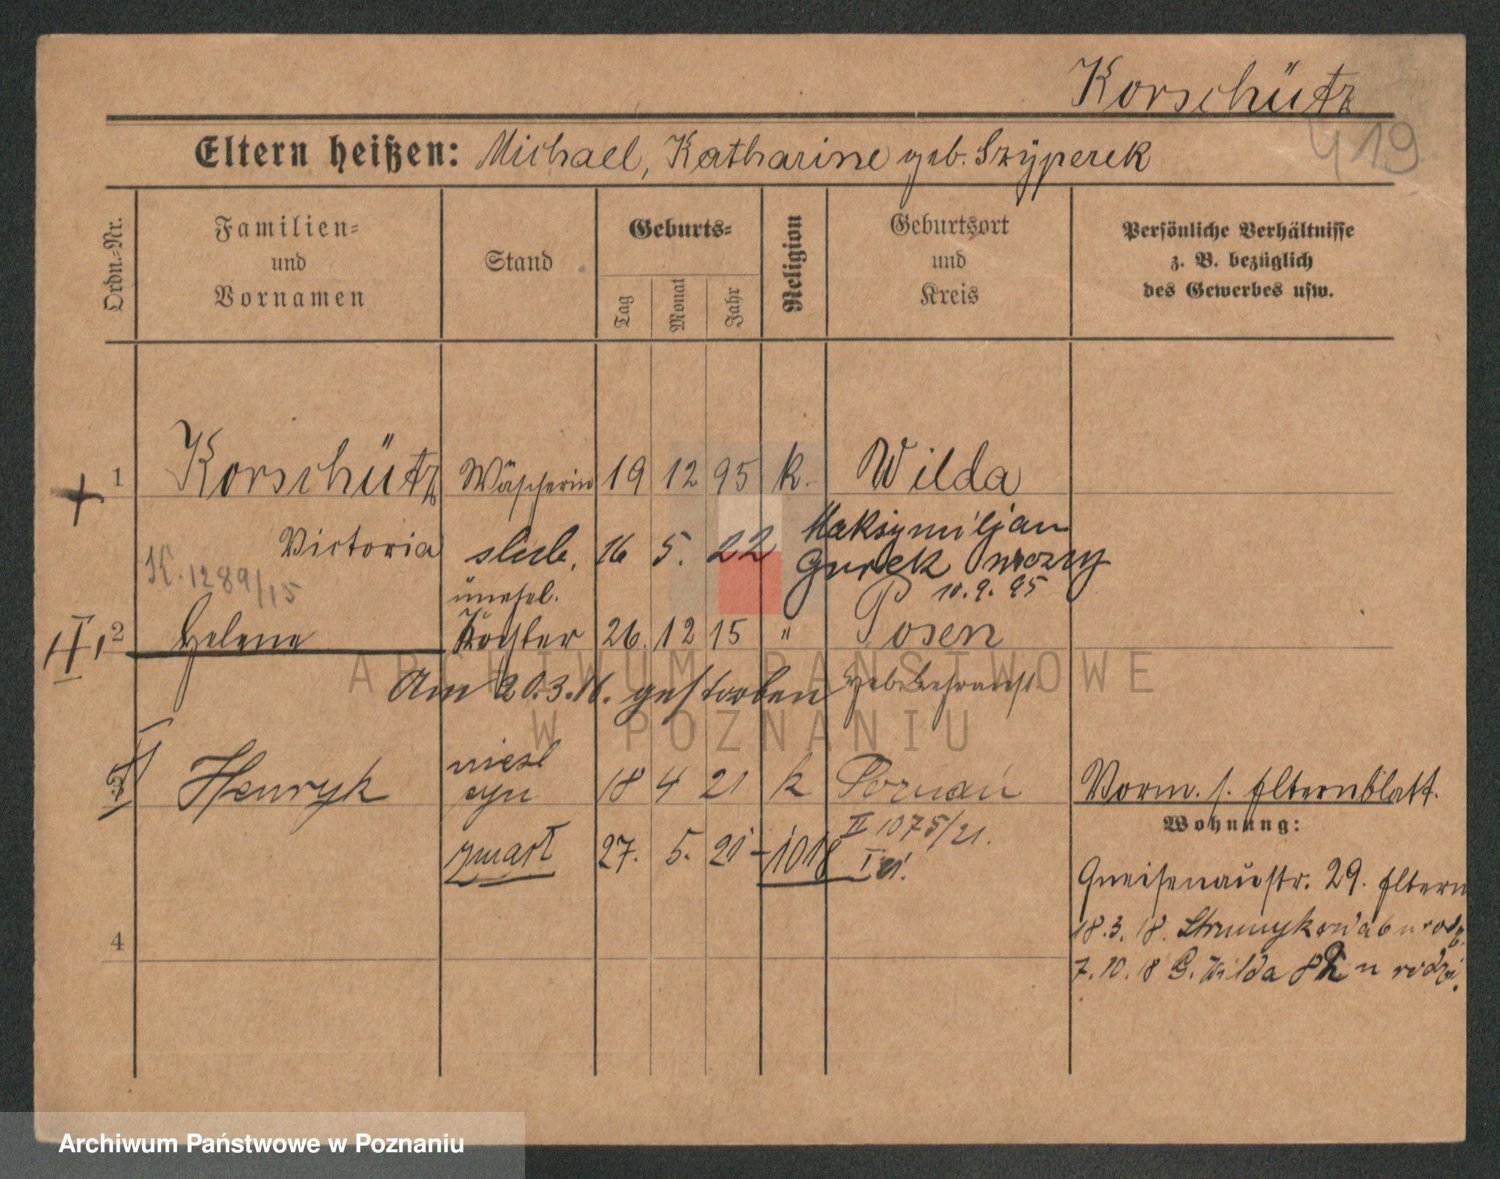 Korschütz
419
Eltern heißen: Michael, Katharine geb. Szyperek
Ordn.-Nr.
Familien-
und
Vornamen
Stand
Geburts-
Tag
Monat
Jahr
Religion
Geburtsort
und
Kreis
Persönliche Verhältnisse
z. B. bezüglich
des Gewerbes usw.
1 Korschütz Wäscherin 19 12 95 k. Wilda
Maksymiljan
Victoria ślub. 16 5. 22 Gurek
K. 1289/15
10.9.95
unehel.
II, 2 Helene Tochter 26. 12 15 " Posen
Am 20.3.16. gestorben
nieśl
Henryk syn 18 4 21 k Poznań
Vorm. s. Elternblatt.
II 1075/21.
Wohnung:
zmarł 27. 5. 21 - 1018
Gneisenaustr. 29. Eltern
18.3.18.
4
7.10.18 G. Wilda
ARCHIWUM PAŃSTWOWE
W POZNANIU
Archiwum Państwowe w Poznaniu